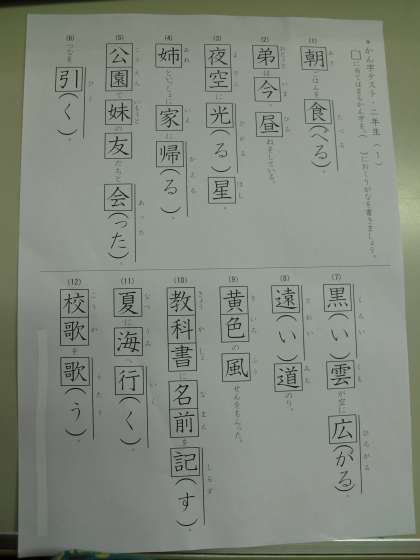 ★かん字テスト・二年生（１）
□に当てはまるかん字を、（ ）におくりがなを書きましょう。
(1) 朝ごはんを食（べる）。
(2) 弟は今、昼ねをしている。
(3) 夜空に光（る）星。
(4) 姉といっしょに家に帰（る）。
(5) 公園で妹の友だちと会（った）。
(6) つなを引（く）。
(7) 黒（い）雲が空に広（がる）。
(8) 遠（い）道のり。
(9) 黄色の風せんをもらった。
(10) 教科書に名前を記（す）。
(11) 夏に海へ行（く）。
(12) 校歌を歌（う）。